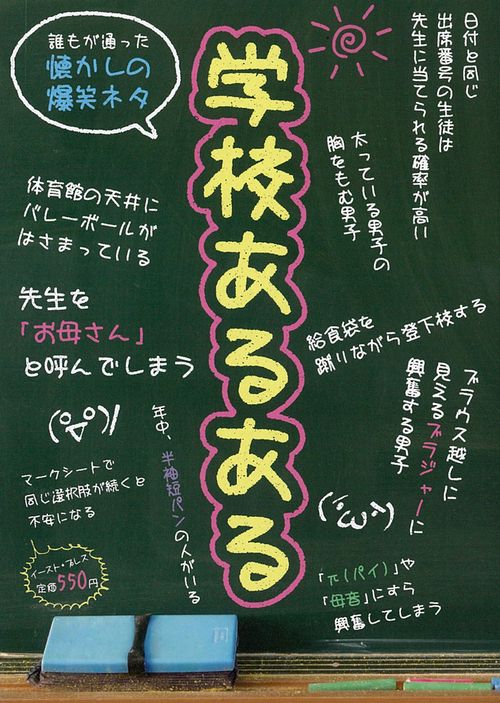 日付と同じ
出席番号の生徒は
先生に当てられる確率が高い
太っている男子の
胸をもむ男子
学校あるある
誰もが通った
懐かしの
爆笑ネタ
体育館の天井に
バレーボールが
はさまっている
先生を
「お母さん」
と呼んでしまう
給食袋を
蹴りながら登下校する
ブラウス越しに
見えるブラジャーに
興奮する男子
年中、半袖短パンの人がいる
マークシートで
同じ選択肢が続くと
不安になる
「π(パイ)」や
「母音」にすら
興奮してしまう
イースト・プレス
定価550円